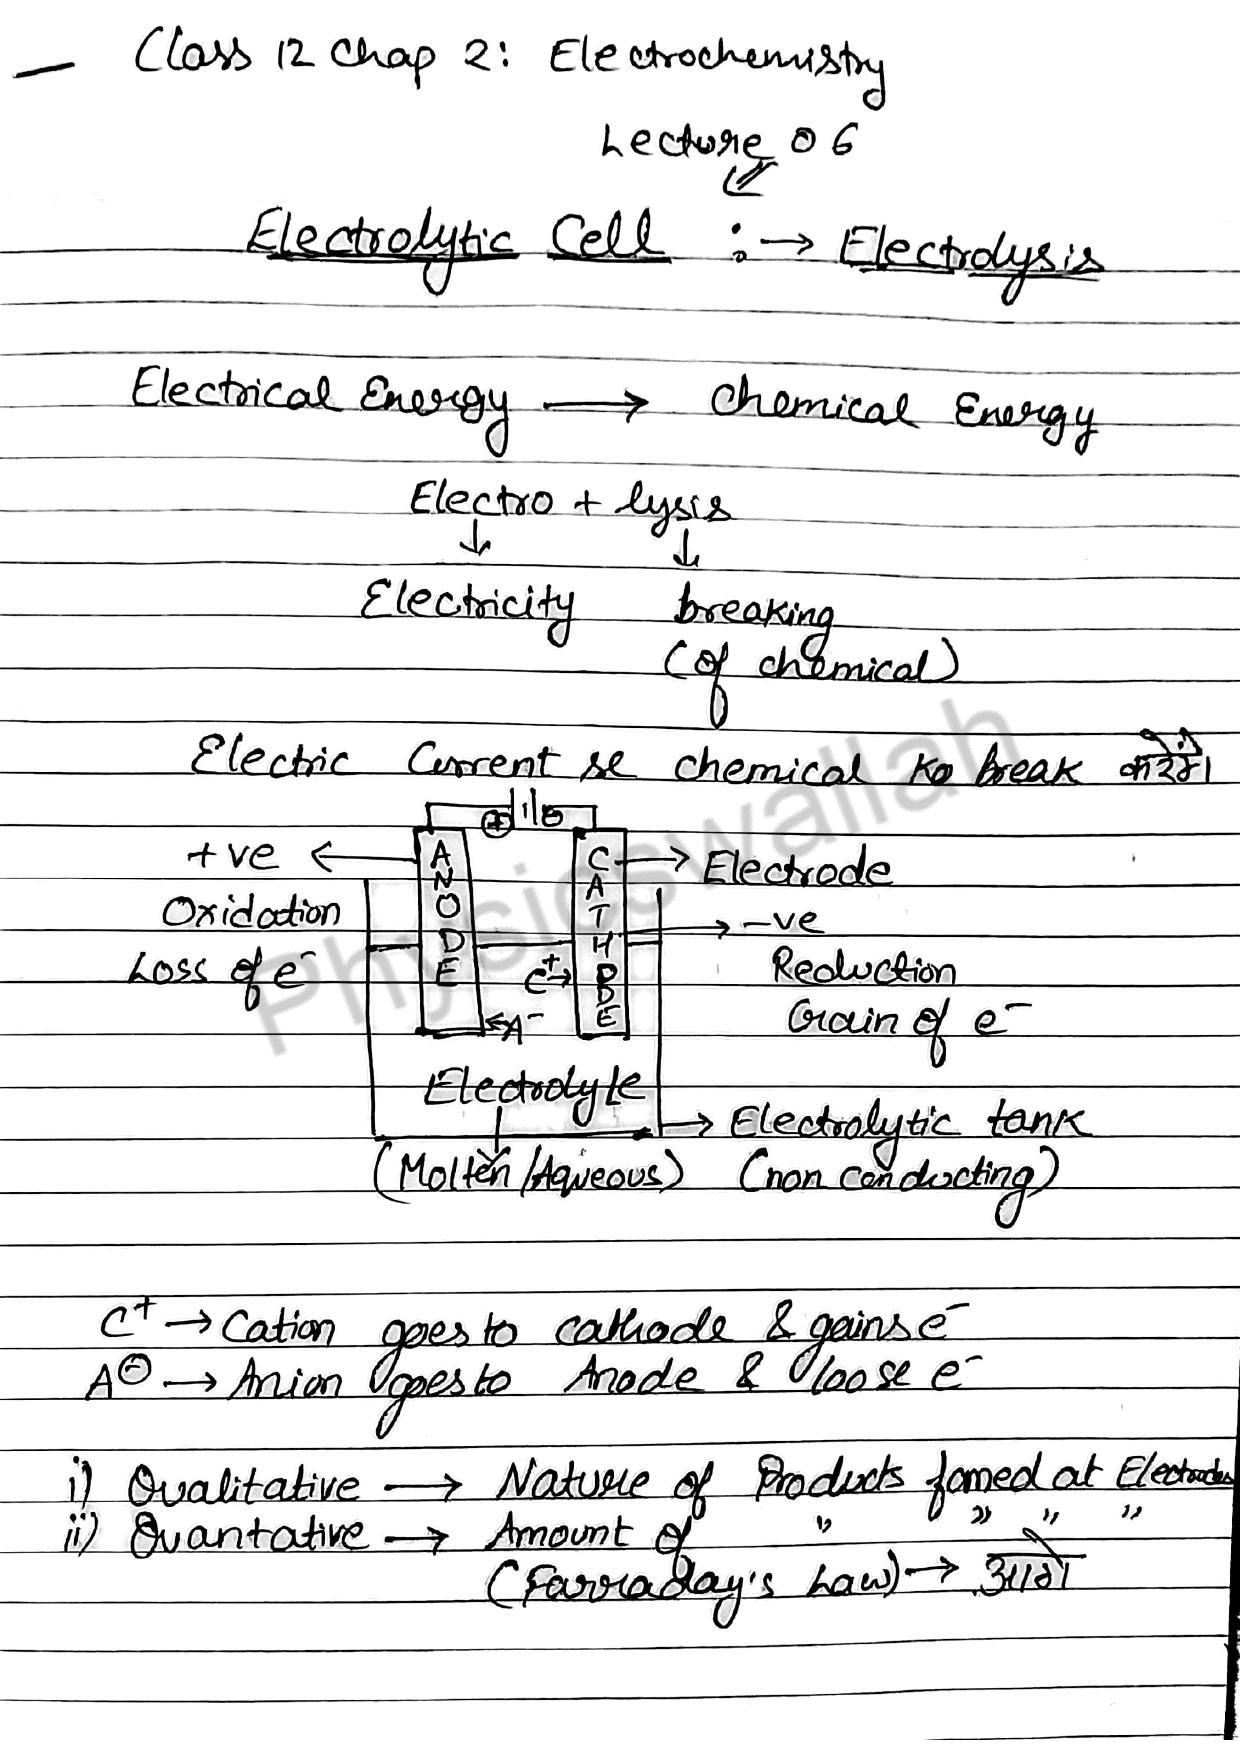 Class 12 Chap 2: Electrochemistry
Lecture 06
Electrolytic Cell :→ Electrolysis
Electrical Energy → Chemical Energy
Electro + lysis
↓ ↓
Electricity breaking
(of chemical)
Electric Current se chemical ko break करेंगे।
⊕ ⊖
+ve ← ANODE CATHODE → Electrode
Oxidation → -ve
Loss of e⁻ C⁺→ Reduction
←A⁻ Grain of e⁻
Electrolyte
→ Electrolytic tank
(Molten/Aqueous) (non conducting)
C⁺ → Cation goes to cathode & gains e⁻
A⊖ → Anion goes to Anode & loose e⁻
i) Qualitative → Nature of Products fomed at Electrodes
ii) Quantative → Amount of " " " "
(Farraday's Law) → आगे
Physicswallah